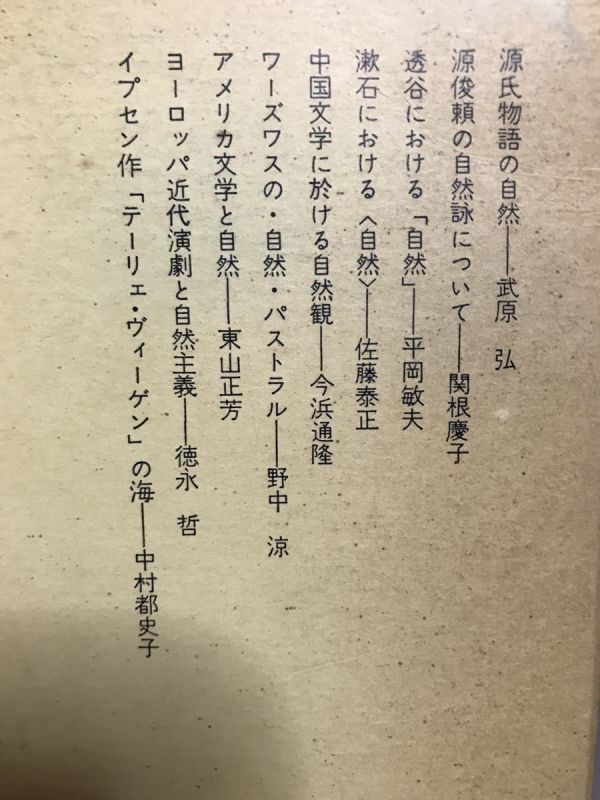 源氏物語の自然──武原　弘
源俊頼の自然詠について──関根慶子
透谷における「自然」──平岡敏夫
漱石における〈自然〉──佐藤泰正
中国文学に於ける自然観──今浜通隆
ワーズワスの・自然・パストラル──野中　涼
アメリカ文学と自然──東山正芳
ヨーロッパ近代演劇と自然主義──徳永　哲
イプセン作「テーリェ・ヴィーゲン」の海──中村都史子